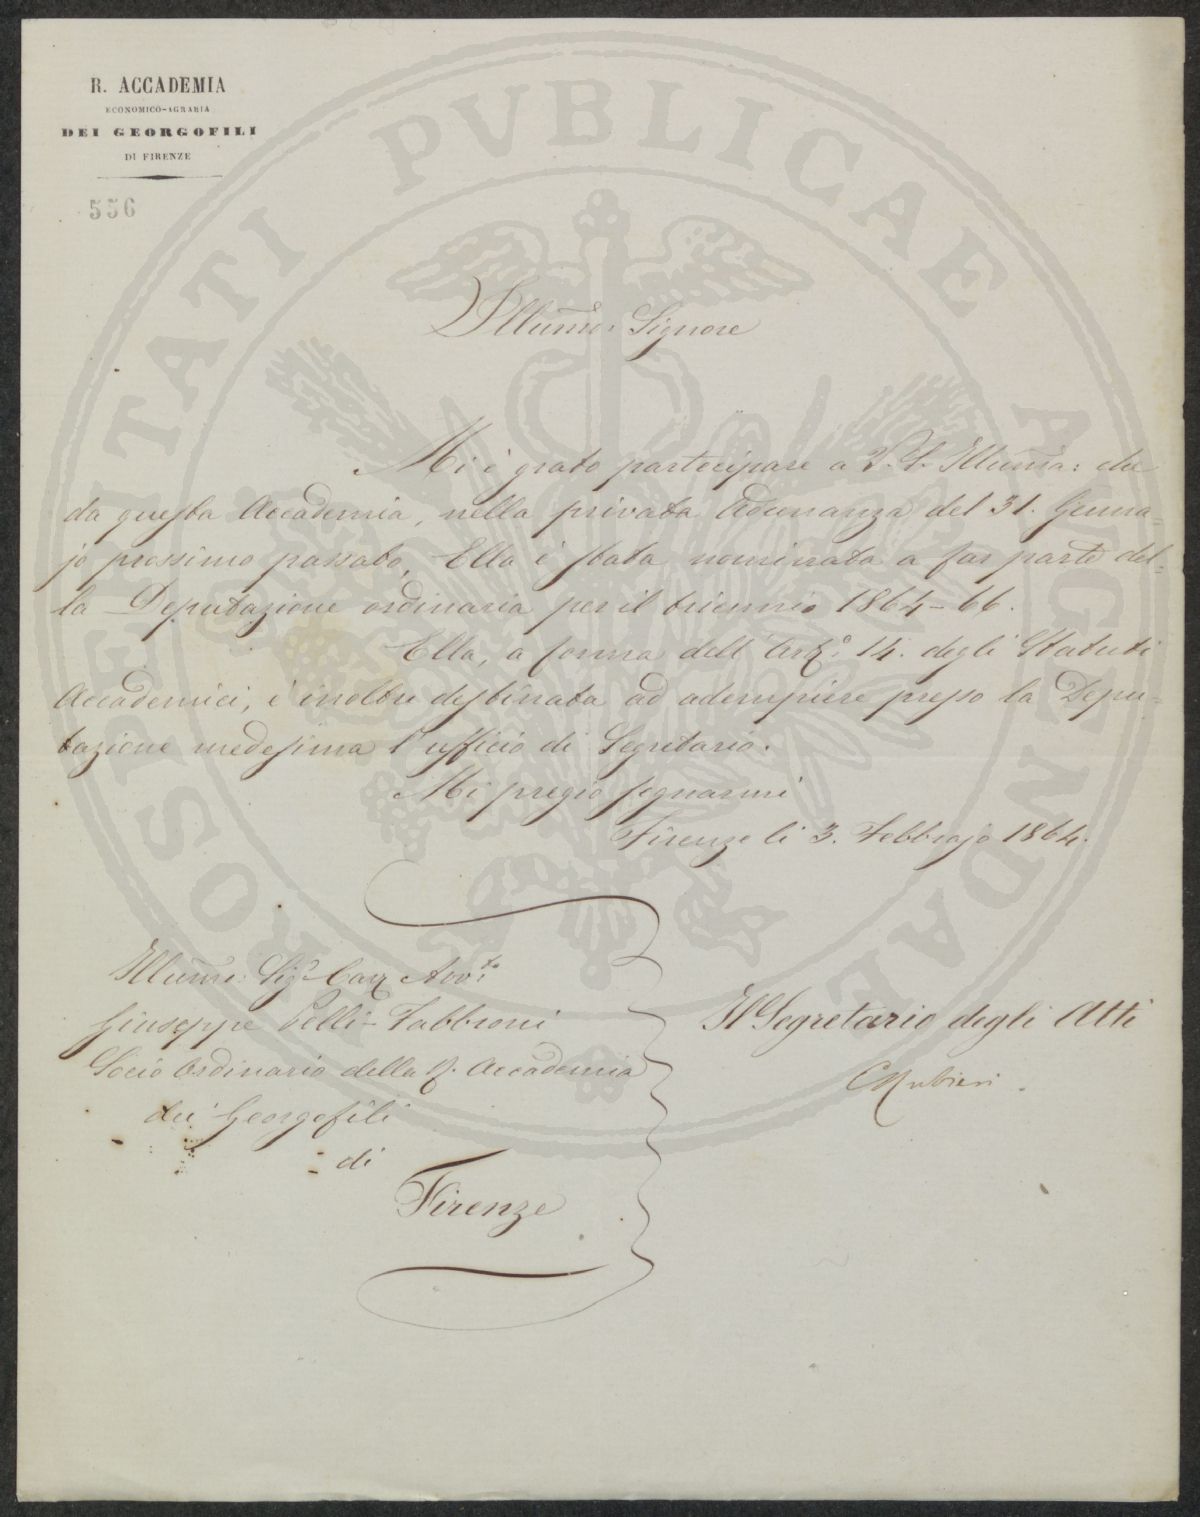 R. ACCADEMIA
ECONOMICO-AGRARIA
DEI GEORGOFILI
DI FIRENZE
556
PROSPERITATI PUBLICAE AUGENDAE
Illum̃o: Signore
Mi è grato partecipare a V. S. Illum̃a: che
da questa Accademia, nella privata Adunanza del 31. Genna-
jo prossimo passato, Ella è stata nominata a far parte del-
la Deputazione ordinaria per il triennio 1864-66.
Ella, a forma dell'Art.º 14. degli Statuti
Accademici, è inoltre destinata ad adempiere presso la Depu-
tazione medesima l'ufficio di Segretario.
Mi pregio segnarmi
Firenze li 3. Febbrajo 1864.
Illum̃o: Sig.r Cav. Avv.to
Giuseppe Pelli-Fabbroni
Socio Ordinario della R. Accademia
dei Georgofili
di
Firenze
Il Segretario degli Atti
CRubieri.